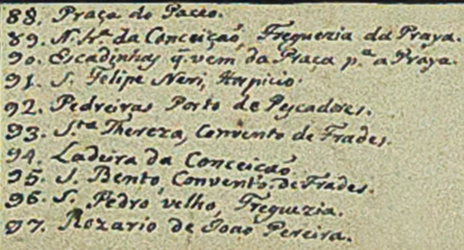 88. Praça do Paceo.
89. N. Sr.ª da Conceição, Freguezia da Praya.
90. Escadinhas q̃ vem da Praça p.ª a Praya.
91. S. Felipe Neri, Hospicio.
92. Pedreiras Porto de Pescadores.
93. S.ta Thereza, Convento de Frades.
94. Ladeira da Conceição.
95. S. Bento, Convento de Frades.
96. S. Pedro velho, Freguezia.
97. Rozario de Joao Pereira.